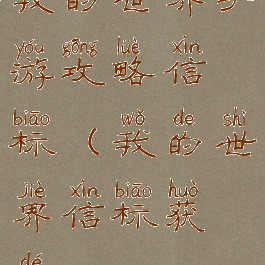 我的世界
yóu gōng lüè xìn
游攻略信
biāo wǒ de shì
标（我的世
jiè xìn biāo huò
界信标获
dé